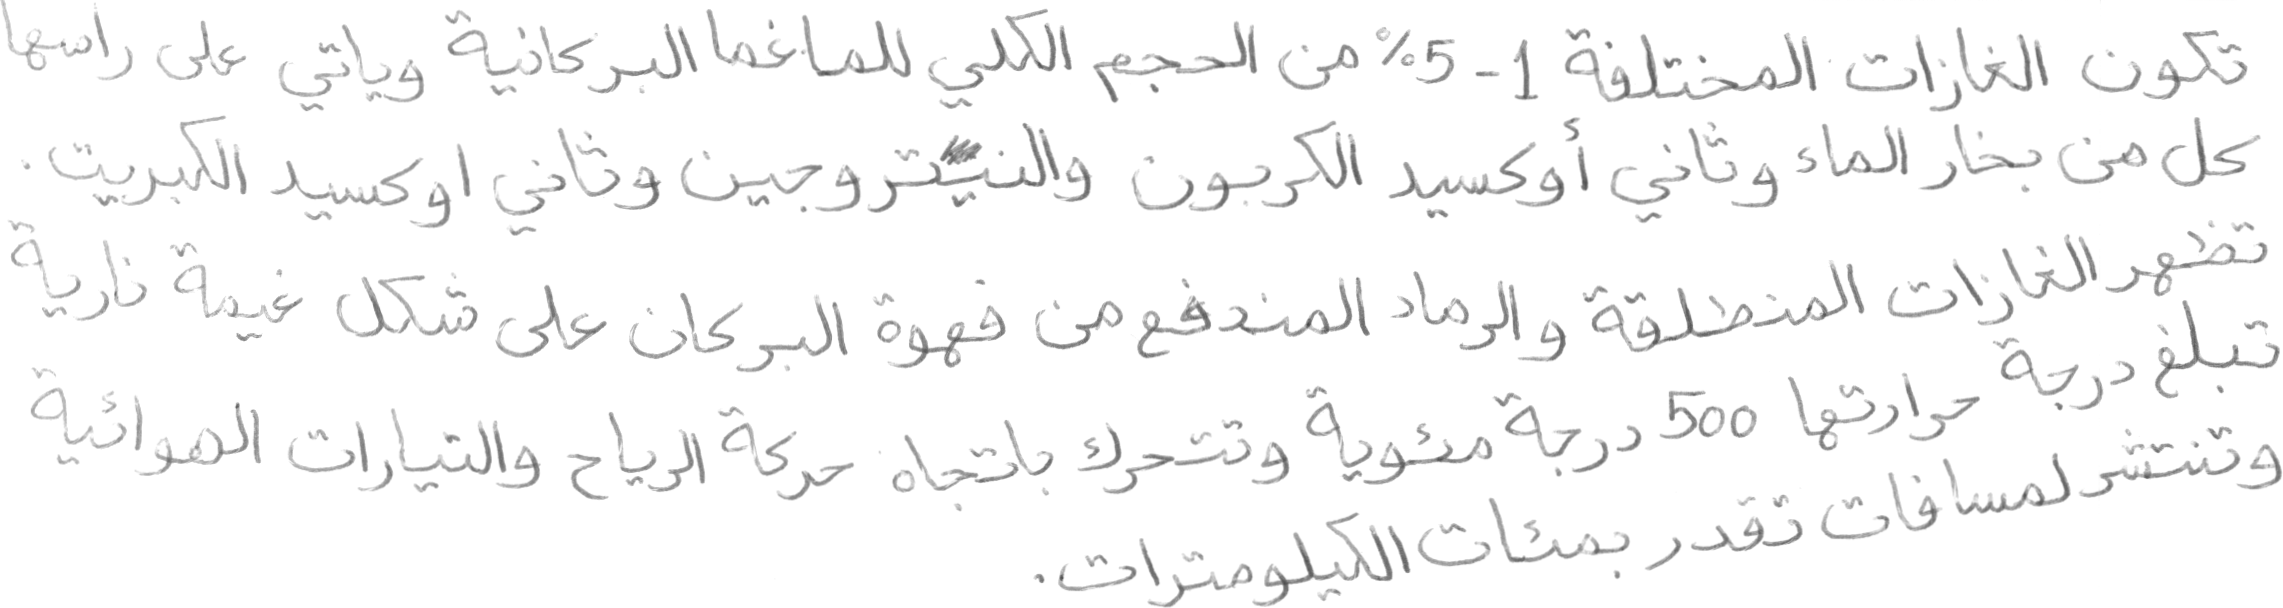 تكون الغازات المختلفة 1-5% من الحجم الكلي للماغما البركانية وياتي على راسها
كل من بخار الماء وثاني أوكسيد الكربون والنيتروجين وثاني اوكسيد الكبريت.
تظهر الغازات المنطلقة والرماد المندفع من فهوة البركان على شكل غيمة نارية
تبلغ درجة حرارتها 500 درجة مئوية وتتحرك باتجاه حركة الرياح والتيارات الهوائية
وتنتشر لمسافات تقدر بمئات الكيلومترات.